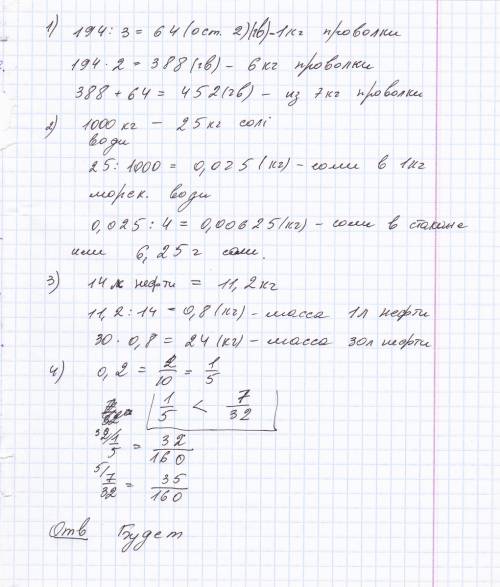 1) 194 : 3 = 64 (ост. 2) (гв) - 1 кг проволки
194 · 2 = 388 (гв) - 6 кг проволки
388 + 64 = 452 (гв) - из 7 кг проволки
2) 1000 кг - 25 кг солі
води
25 : 1000 = 0,025 (кг) - соли в 1 кг
морск. води
0,025 : 4 = 0,00625 (кг) - соли в стакане
или 6,25 г соли.
3) 14 л нефти = 11,2 кг
11,2 : 14 = 0,8 (кг) - масса 1л нефти
30 · 0,8 = 24 (кг) - масса 30л нефти
4) 0,2 = 2/10 = 1/5
1/5 < 7/32
32/ 1/5 = 32/160
5/ 7/32 = 35/160
Отв Будет